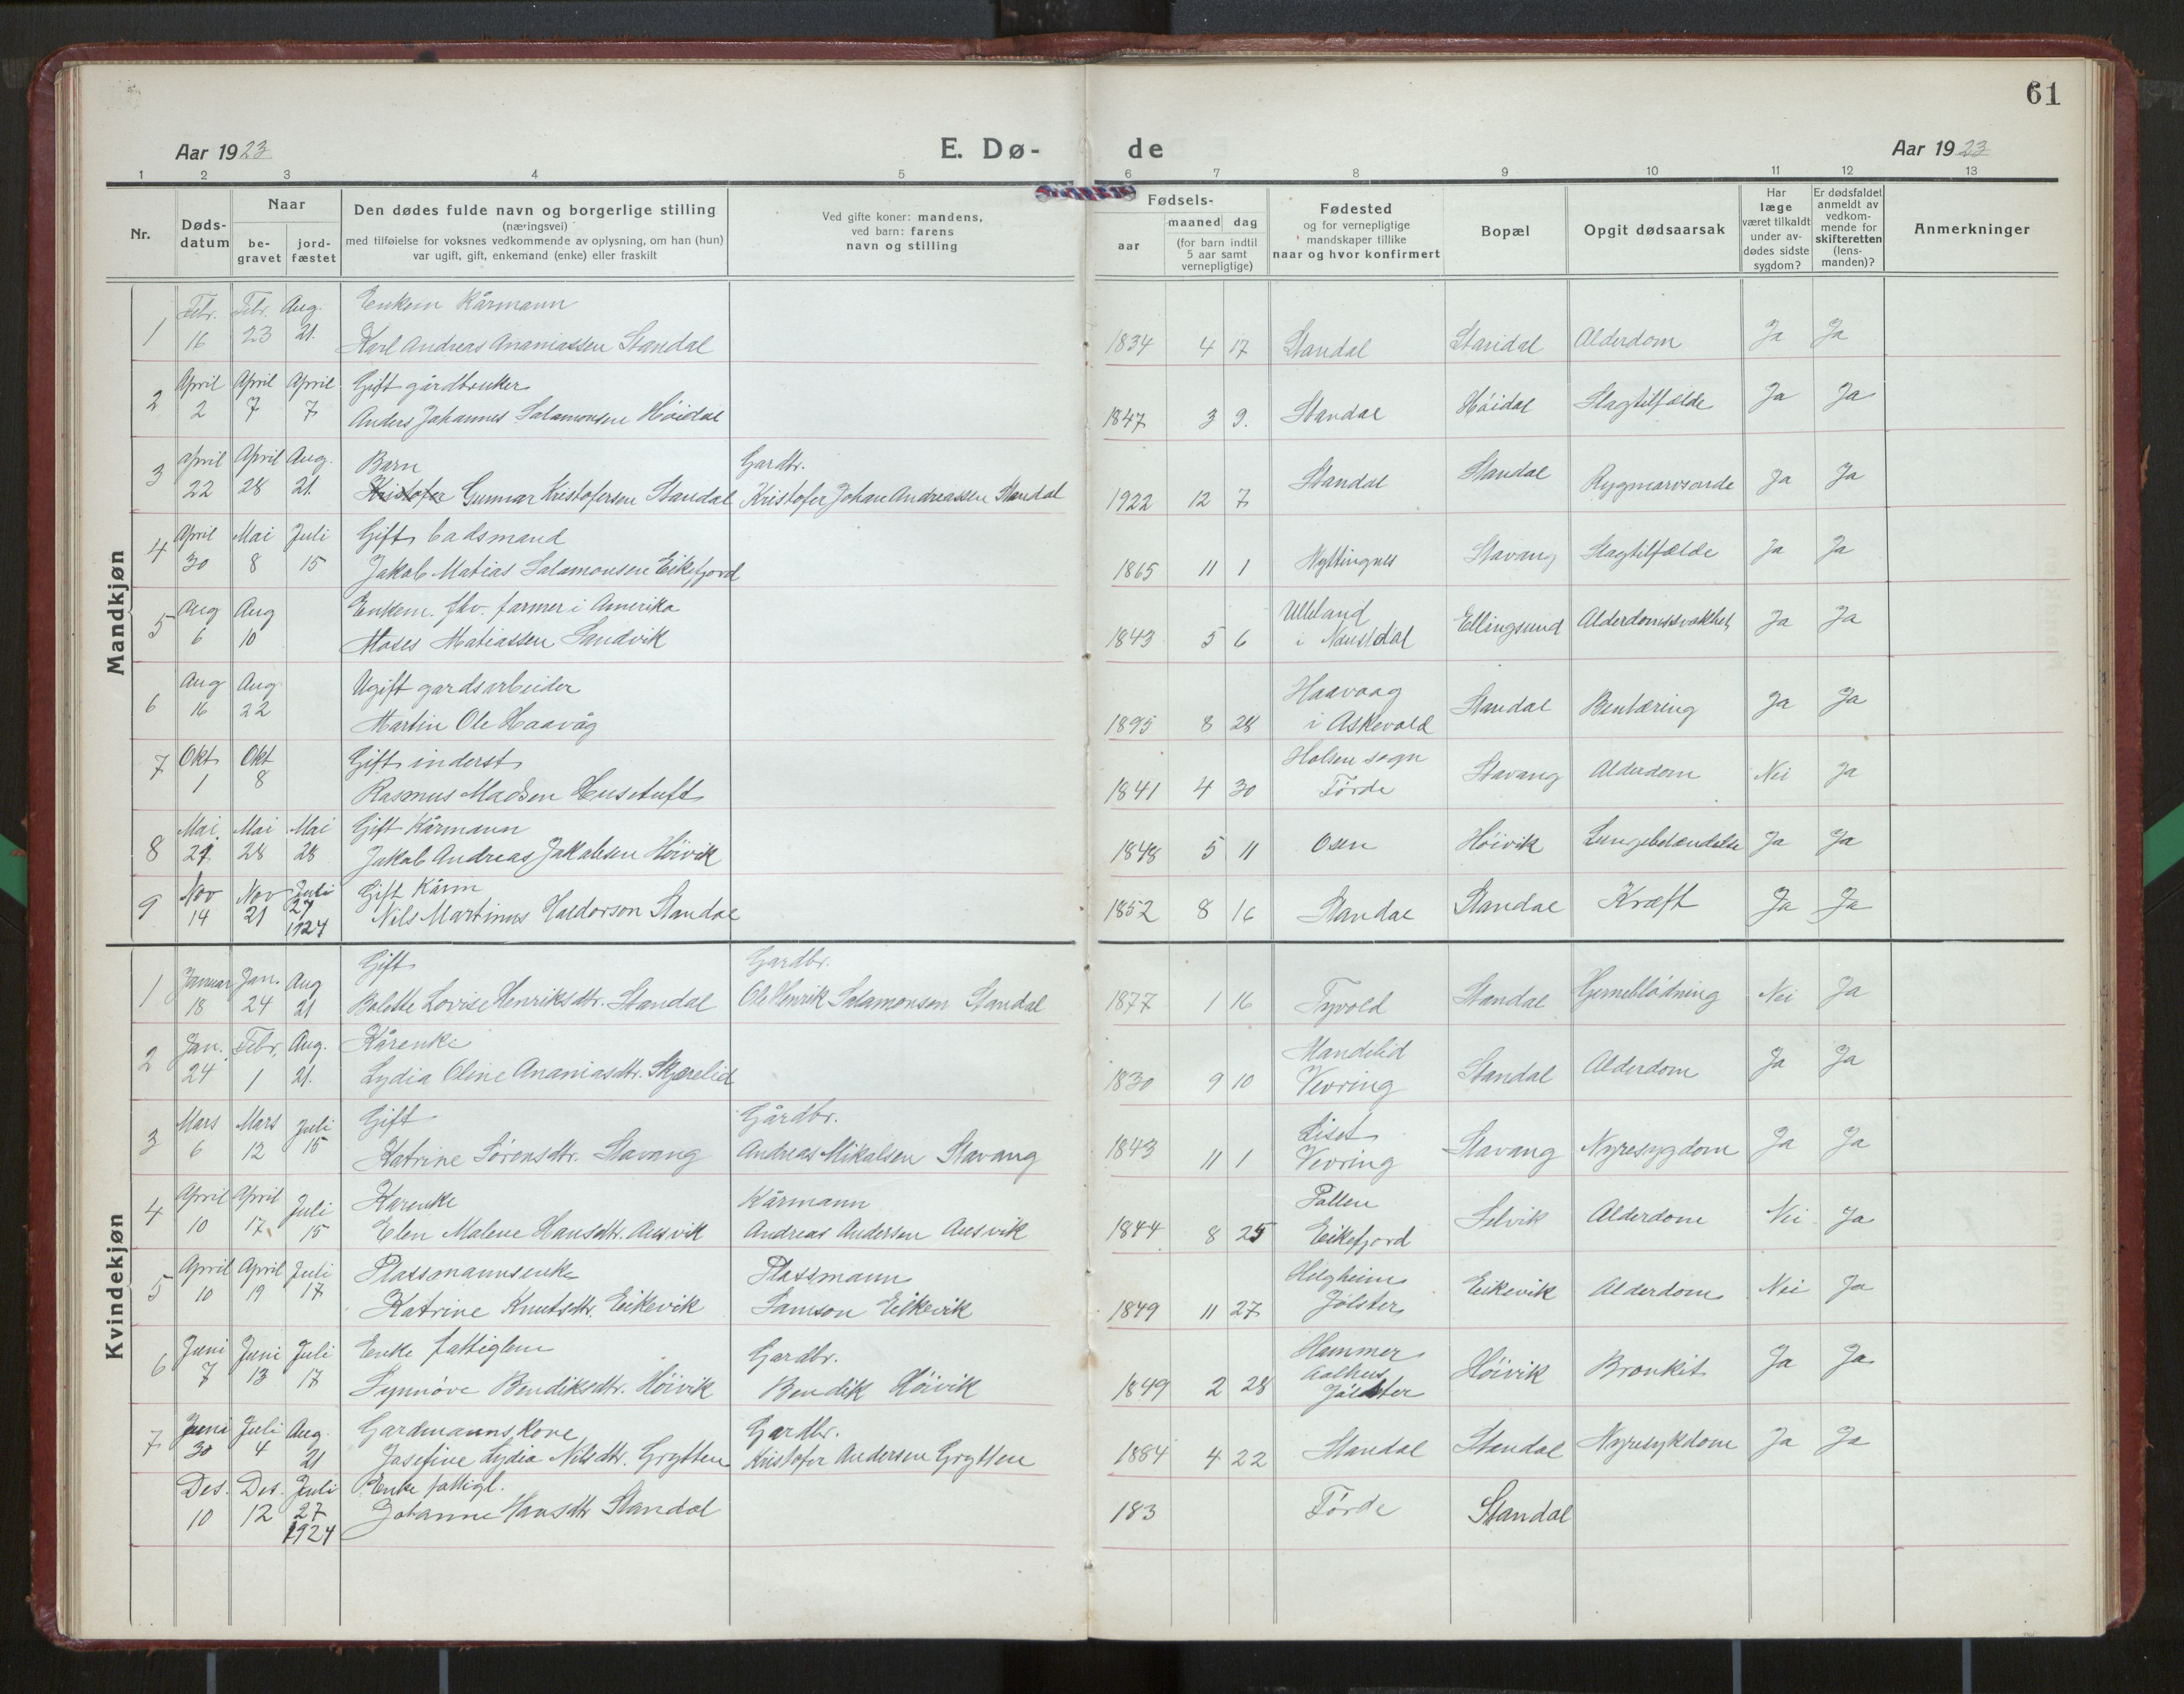 61
Aar 1923 E. Dø- de Aar 1923
1 2 3 4 5 6 7 8 9 10 11 12 13
Nr.
Døds-
datum
Naar
be-
gravet
jord-
fæstet
Den dødes fulde navn og borgerlige stilling
(næringsvei)
med tilføielse for voksnes vedkommende av oplysning, om han (hun)
var ugift, gift, enkemand (enke) eller fraskilt
Ved gifte koner: mandens,
ved barn: farens
navn og stilling
Fødsels-
aar
maaned dag
(for barn indtil
5 aar samt
vernepligtige)
Fødested
og for vernepligtige
mandskaper tillike
naar og hvor konfirmert
Bopæl
Opgit dødsaarsak
Har
læge
været tilkaldt
under av-
dødes sidste
sygdom?
Er dødsfaldet
anmeldt av
vedkom-
mende for
skifteretten
(lens-
manden)?
Anmerkninger
Mandkjøn
Febr. Febr. Aug. Enkem Kårmann
1 16 23 21. Karl Andreas Ananiassen Standal 1834 4 17 Standal Standal Alderdom Ja Ja
April April April Gift gårdbruker
2 2 7 7 Anders Johannes Salamonsen Höidal 1847 3 9. Standal Höidal Slagtilfælde Ja Ja
April April Aug. Barn Gardbr.
3 22 28 21. Kristofer Gunnar Kristofersen Standal Kristofer Johan Andreassen Standal 1922 12 7 Standal Standal Ja Ja
April Mai Juli Gift badsmand
4 30 8 15 Jakob Matias Salamonsen Eikefjord 1865 11 1 Nyttingnes Stavang Slagtilfælde Ja Ja
Aug Aug Enkem. fhv. farmer i Amerika Ulleland
5 6 10 Moses Matiassen Sandvik 1843 5 6 i Naustdal Ellingsund Alderdomssvakhet Ja Ja
Aug Aug Ugift gardsarbeider Haavaag
6 16 22 Martin Ole Haavåg 1895 8 28 i Askevold Standal Bentæring Ja Ja
Okt Okt Gift inderst Holsen sogn
7 1 8 Rasmus Madsen Husetuft 1841 4 30 Förde Stavang Alderdom Nei Ja
Mai Mai Mai Gift Kårmann
8 28 28 Jakob Andreas Jakobsen Höivik 1848 5 11 Osen Höivik Lungebetændelse Ja Ja
Nov Nov Juli Gift Kårm
9 14 21 27 1924 Nils Martinus Haldorson Standal 1852 8 16 Standal Standal Kræft Ja Ja
Kvindekjøn
Januar Jan. Aug Gift Gardbr.
1 18 24 21 Bolette Lovise Henriksdtr. Standal Ole Henrik Salamonsen Standal 1877 1 16 Tyvold Standal Hjerneblödning Nei Ja
Jan. Febr. Aug. Kårenke Mandelid
2 24 1 21. Lydia Oline Ananiasdtr. Skjerelid 1830 9 10 Vevring Standal Alderdom Ja Ja
Mars Mars Juli Gift Gårdbr. Liset
3 6 12 15 Katrine Sörensdtr. Stavang Andreas Mikalsen Stavang 1843 11 1 Vevring Stavang Nyresygdom Ja Ja
April April Juli Karenke Kårmann Pollen
4 10 17 15 Elen Malene Hansdtr. Ausvik Andreas Andersen Ausvik 1844 8 25 Eikefjord Selvik Alderdom Nei Ja
April April Juli Plassmannsenke Plassmann Helgheim
5 10 19 17 Katrine Knutsdtr. Eikevik Samson Eikevik 1849 11 27 Jölster Eikevik Alderdom Nei Ja
Juni Juni Juli Enke fattiglem Gardbr. Hammer Aalhus
6 7 13 17 Synnöve Bendiksdtr. Höivik Bendik Höivik 1849 2 28 Jölster Höivik Bronkit Ja Ja
Juni Juli Aug. Gardmanns Kone Gardbr.
7 30 4 21 Josefine Lydia Nilsdtr. Grytten Kristofer Andersen Grytten 1884 4 22 Standal Standal Nyresykdom Ja Ja
Des. Des. Juli Enke fattigl.
10 12 27 1924 Johanne Hansdtr Standal 183 Förde Standal